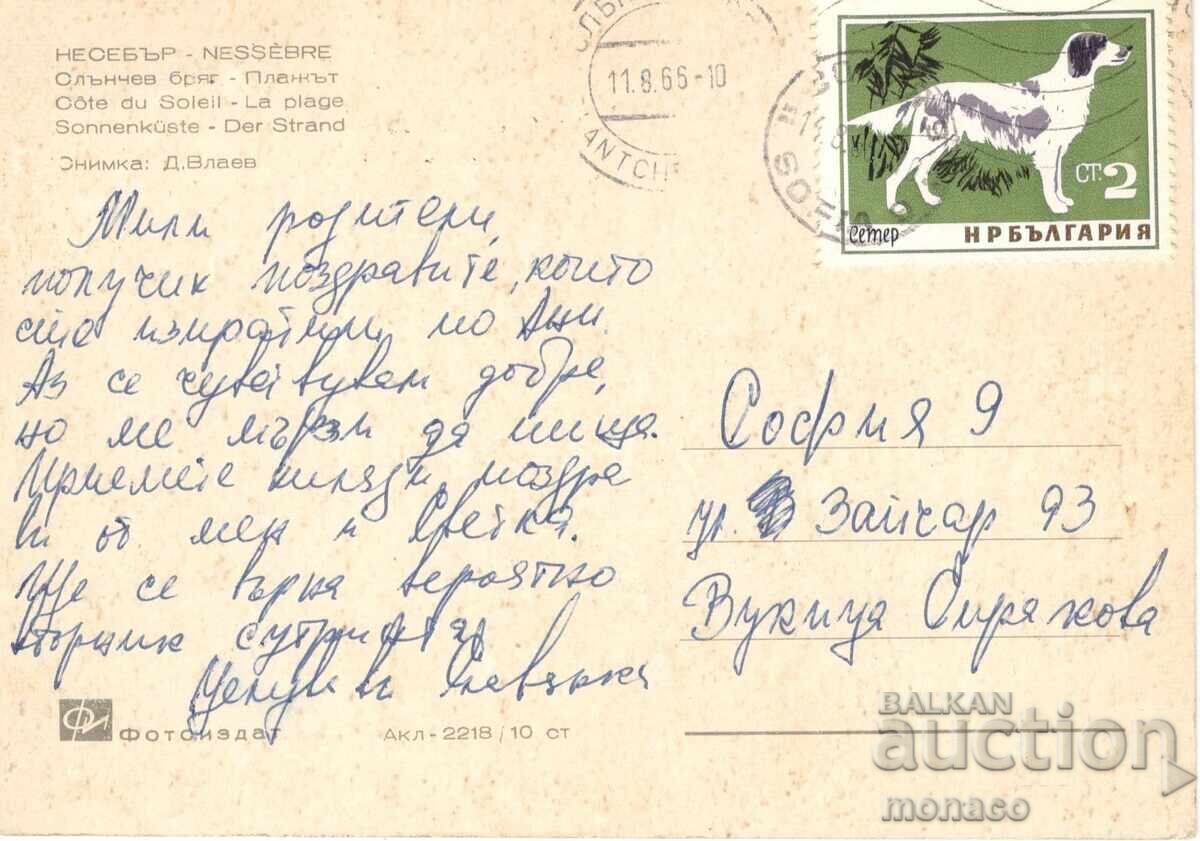 НЕСЕБЪР - NESSÈBRE
Слънчев бряг - Плажът
Côte du Soleil - La plage
Sonnenküste - Der Strand
Снимка: Д.Влаев
11.8.66-10
ANTCH
SOFIA
Сетер
СТ. 2
НРБЪЛГАРИЯ
Мили родители,
получих поздравите, които
сте изпратили по Ани.
Аз се чувствувам добре,
но ме мързи да пиша.
Приемете хиляди поздра
ви от мен и Светка.
Ще се върна вероятно
вторник сутринта
Целува ви Славянка
София 9
ул. Зайчар 93
Вукица Сиракова
Фотоиздат
Акл-2218/10 ст
BALKAN
auction
monaco